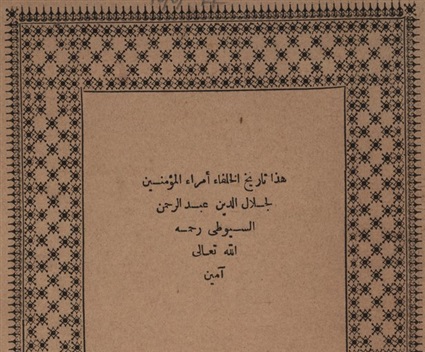 هذا تاريخ الخلفاء أمراء المؤمنين
لجلال الدين عبد الرحمن
السيوطى رحمه
الله تعالى
آمين